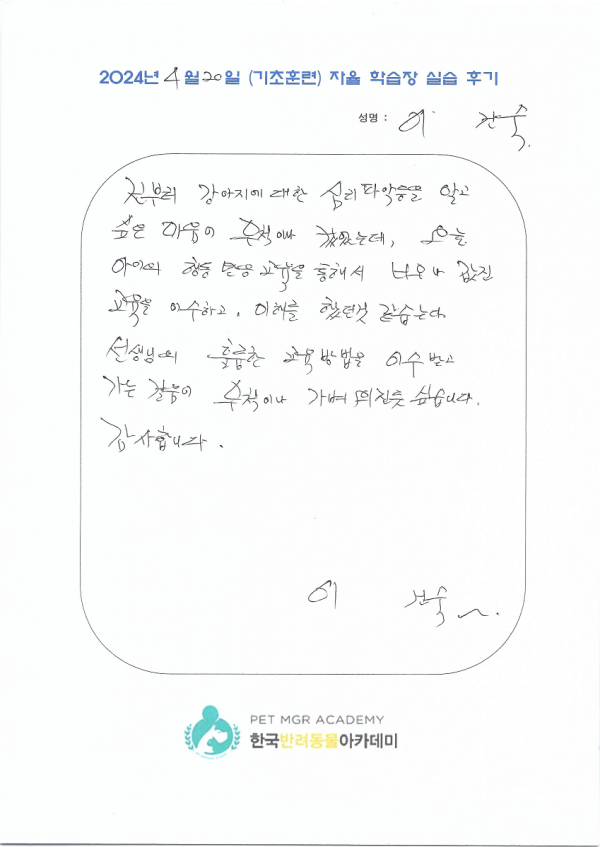 2024년 4월 20일 (기초훈련) 자율 학습장 실습 후기
성명 : 이 숙
강아지에 대한 심리파악등을 알고
싶은 마음이 무척이나 컸었는데, 오늘
아이의 행동 교육을 통해서 너무나 값진
교육을 이수하고, 이해를 했던것 같습니다
선생님의 훌륭한 교육방법을 이수 받고
가는 걸음이 무척이나 가벼워진듯 싶습니다.
감사합니다.
이 숙
PET MGR ACADEMY
한국반려동물아카데미